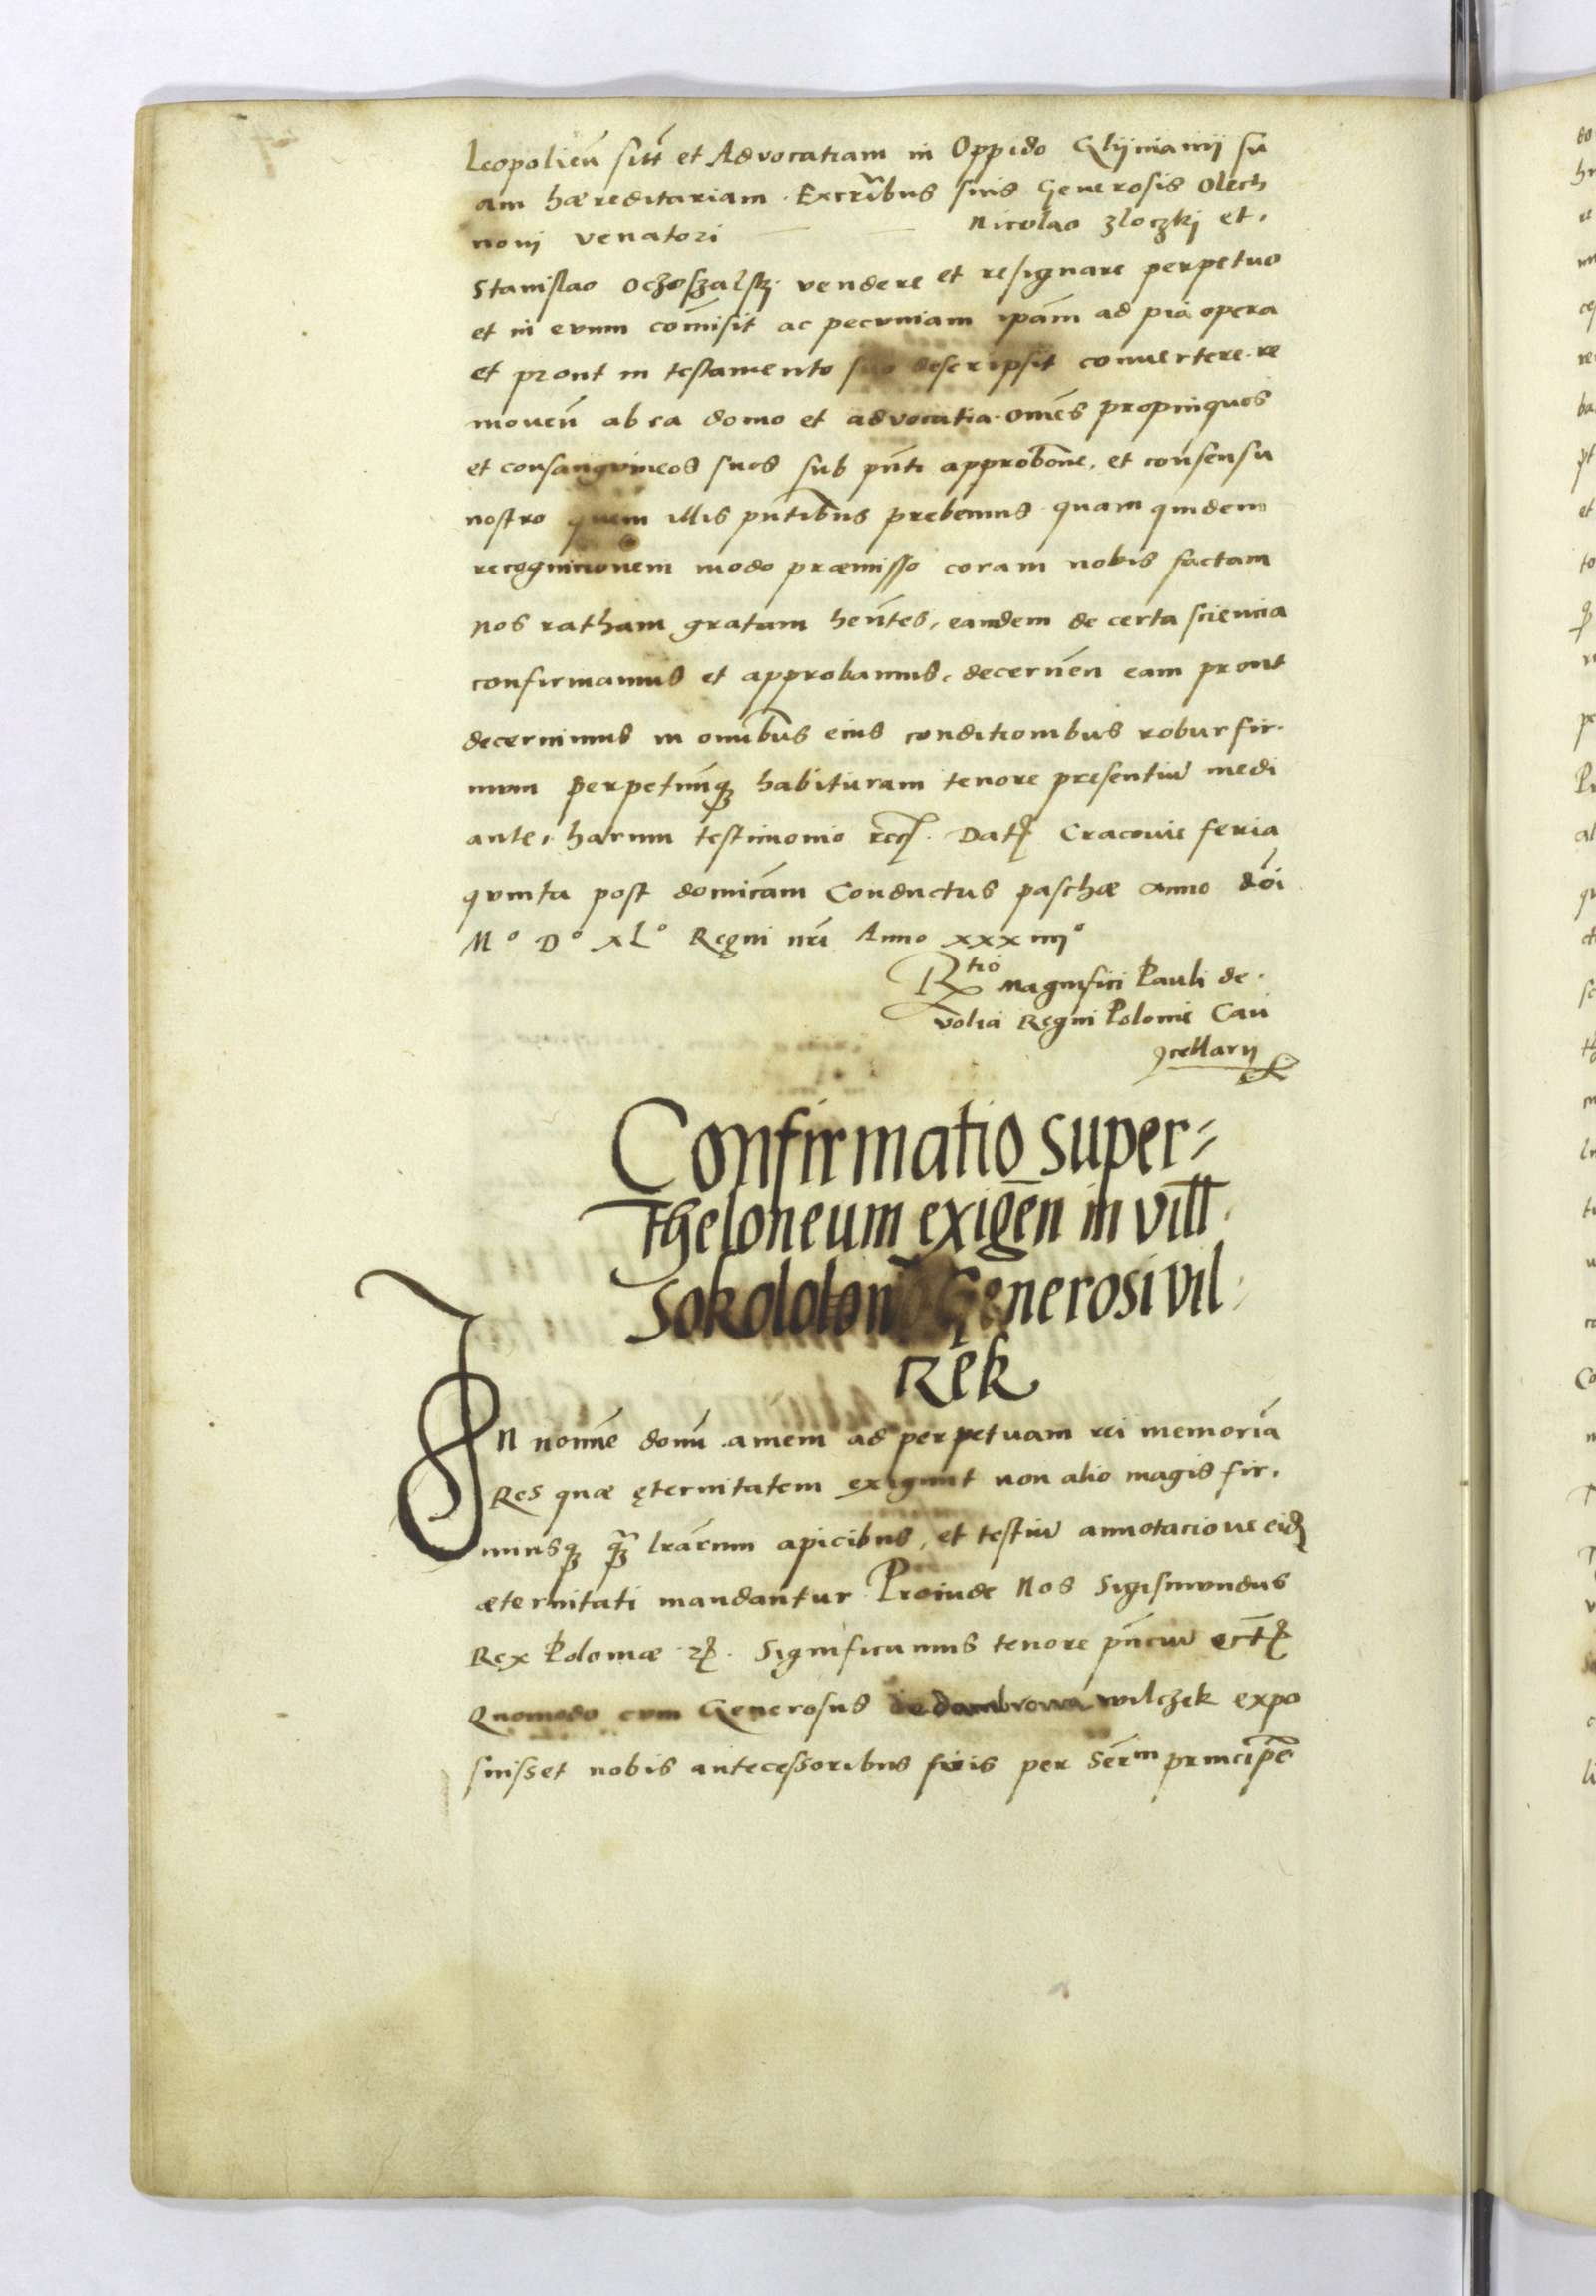 Leopolień sitt et Advocatiam in Oppido Glijnianij su
am hæreditariam. Excr̃ibus suis Generosis Olech
noni venatori Nicolao Zloczkj et.
Stanislao vendere et resignare perpetuo
et in evum com̃isit ac pecuniam ipãm ad pia opera
et prout in testamento suo descripsit convertere. re
moveñ ab ea domo et advocatia. omẽs propinquos
et consanguineos suos sub pñti approbõne. et consensu
nostro quem illis pñtibus prebemus. quam quidem
recognicionem modo præmisso coram nobis factam
nos ratham gratam heñtes, eandem de certa sciencia
confirmamus et approbamus. decerneñ eam prout
decernimus in omĩbus eius conditionibus robur fir.
mum perpetuũq₃ habituram tenore presentiũ medi
ante. harum testimonio Dat Cracovie feria
quinta post domicãm Conductus paschæ anno dõi
M° D° XL° Regni nrĩ Anno xxxiiij°
Rtio Magnifici Pauli de.
volia Regni Polonie Can
cellarij
Confirmatio super=
theloneum exigeñ in vill
Sokololon Generosi vil
czek
In nomĩe domĩ amem ad perpetuam rei memoriã
Res quæ ęternitatem exigunt non alio magis fir.
miusq₃ q̃₃ lrãrum apicibus, et testiũ annotacione eid
æternitati mandantur Proinde Nos Sigismundus
Rex Polomæ Significamus tenore pñciũ
Quomodo cum Generosus de dambrowa wilczek expo
suisset nobis antecessoribus suis per Serm principẽ